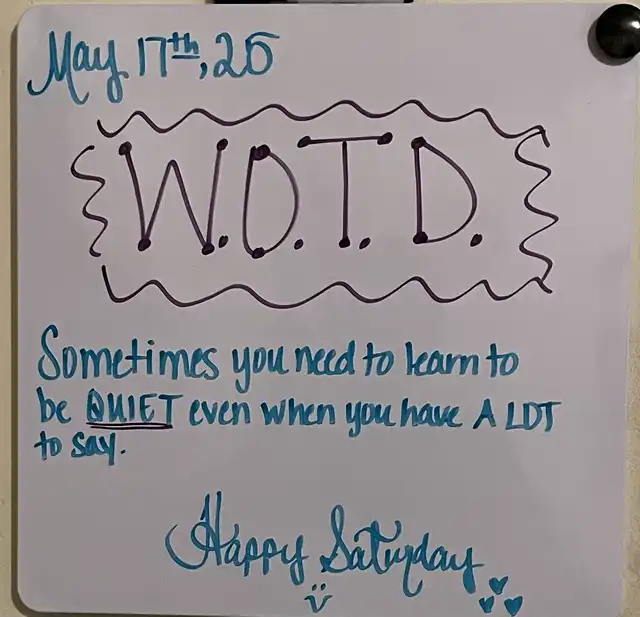 May 17th, 25
W.O.T.D.
Sometimes you need to learn to
be QUIET even when you have A LOT
to say.
Happy Saturday